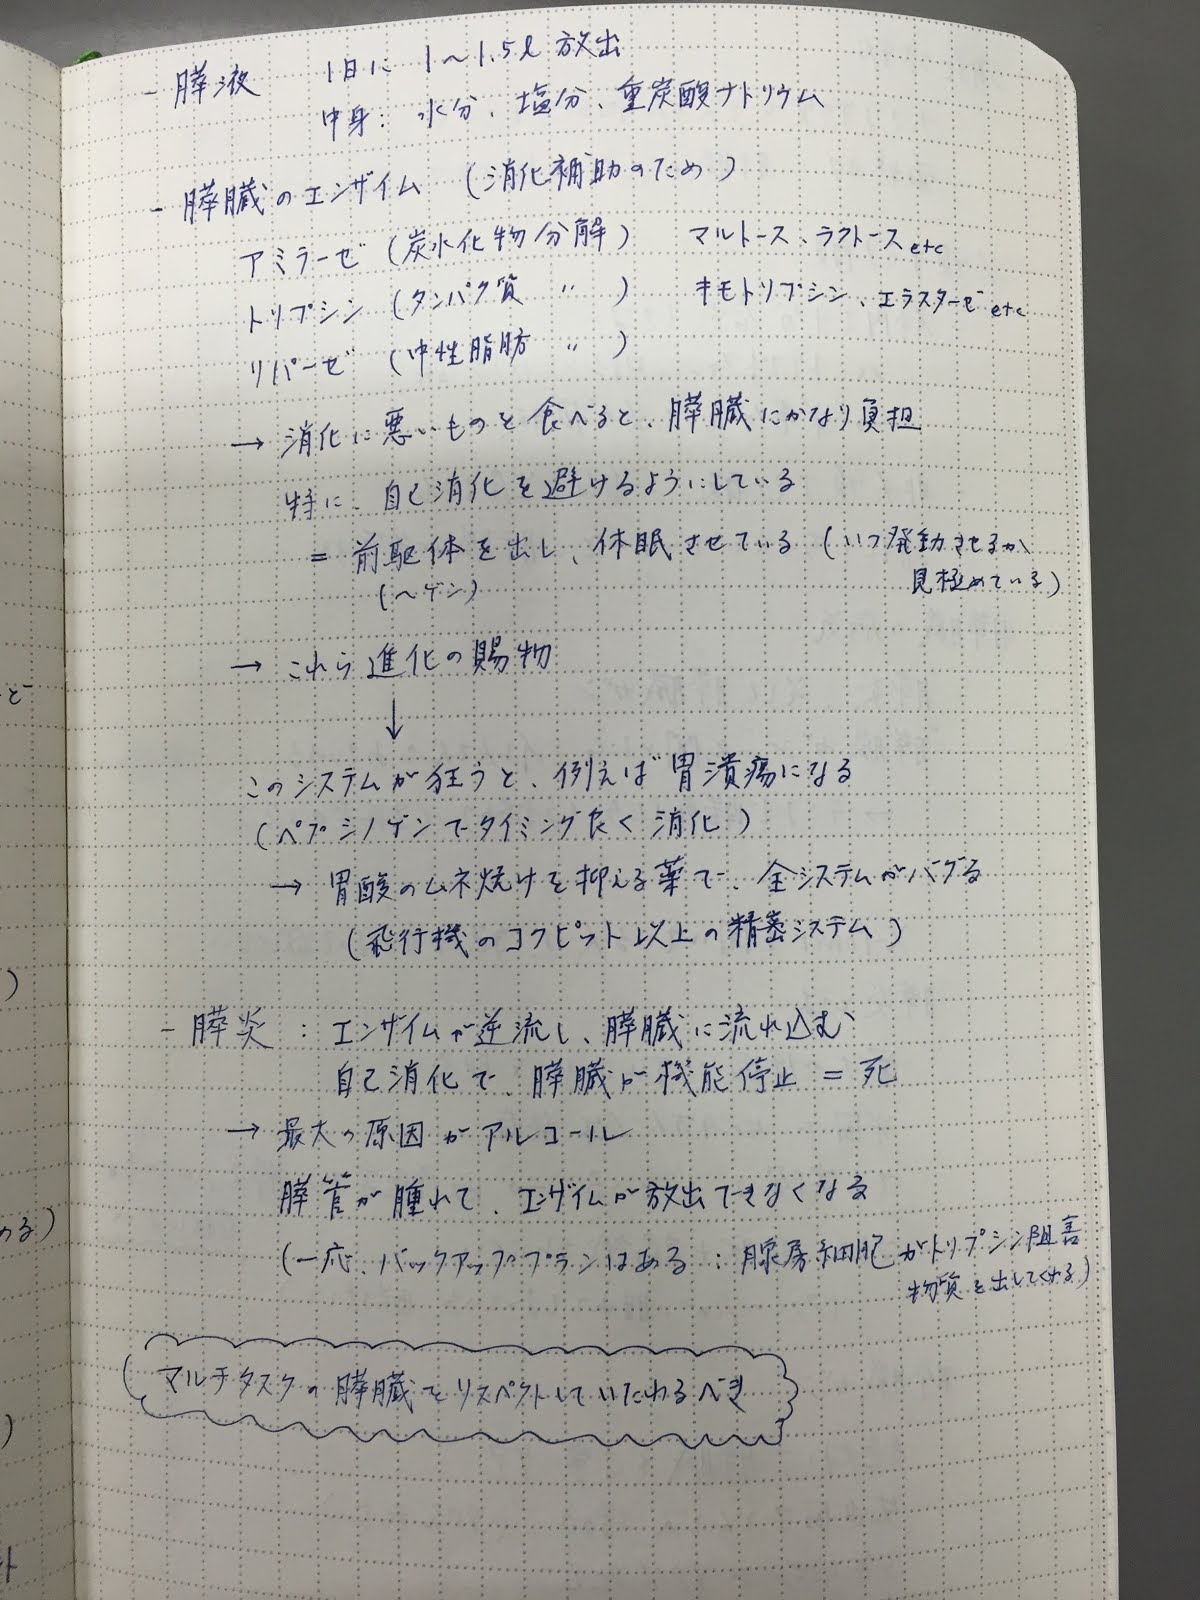 - 膵液 1日に 1〜1.5ℓ 放出
中身: 水分、塩分、重炭酸ナトリウム
- 膵臓のエンザイム (消化補助のため)
アミラーゼ (炭水化物分解) マルトース、ラクトース etc
トリプシン (タンパク質 〃 ) キモトリプシン、エラスターゼ etc
リパーゼ (中性脂肪 〃 )
→ 消化に悪いものを食べると、膵臓にかなり負担
特に、自己消化を避けるようにしている
= 前駆体を出し、休眠させている (いつ発動させるか
見極めている)
(〜ゲン)
→ これら進化の賜物
↓
このシステムが狂うと、例えば胃潰瘍になる
(ペプシノゲンでタイミング良く消化)
→ 胃酸のムネ焼けを抑える薬で、全システムがバグる
(飛行機のコクピット以上の精密システム)
- 膵炎 : エンザイムが逆流し、膵臓に流れ込む
自己消化で、膵臓が機能停止 = 死
→ 最大の原因がアルコール
膵管が腫れて、エンザイムが放出できなくなる
(一応、バックアッププランはある : 腺房細胞がトリプシン阻害
物質を出してくれる)
マルチタスクの膵臓をリスペクトしていたわるべき
と
)
める)
)
ト